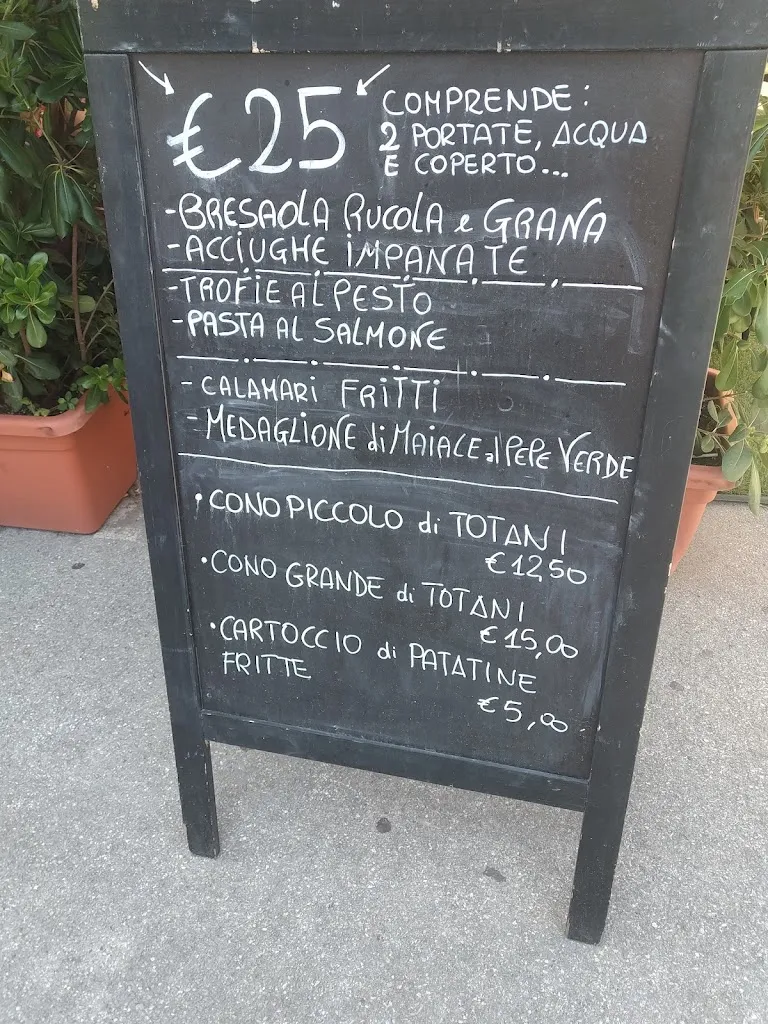 €25 COMPRENDE:
2 PORTATE, ACQUA
E COPERTO...
-BRESAOLA RUCOLA e GRANA
-ACCIUGHE IMPANATE
-TROFIE AL PESTO
-PASTA AL SALMONE
- CALAMARI FRITTI
- MEDAGLIONE di MAIALE al PEPE VERDE
• CONO PICCOLO di TOTANI
€12,50
• CONO GRANDE di TOTANI
€15,00
• CARTOCCIO di PATATINE
FRITTE
€5,00